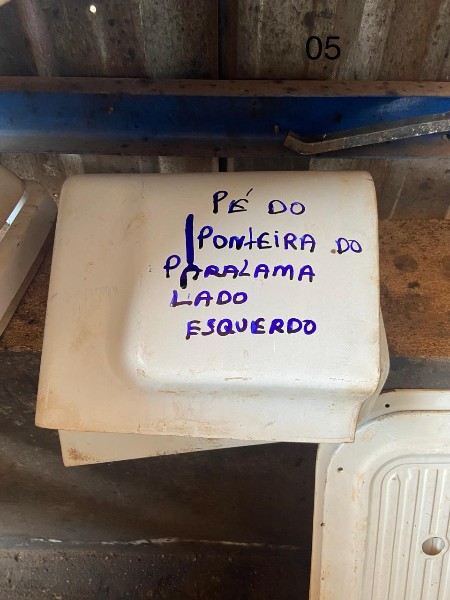 05
PÉ DO
PONTEIRA DO
PARALAMA
LADO
ESQUERDO